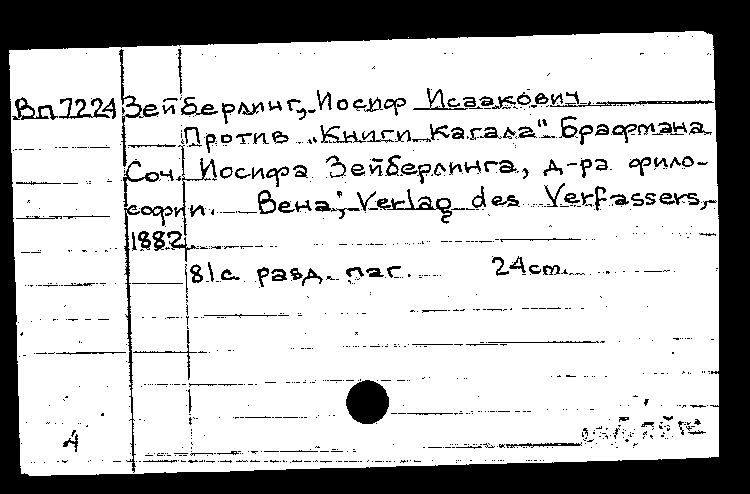 Вп7224 Зейберлинг, Иосиф Исаакович
Против „Книги кагала" Брафмана
Соч. Иосифа Зейберлинга, д-ра фило-
софии. Вена, Verlag des Verfassers,
1882.
81с. разд. паг. 24cm.
А